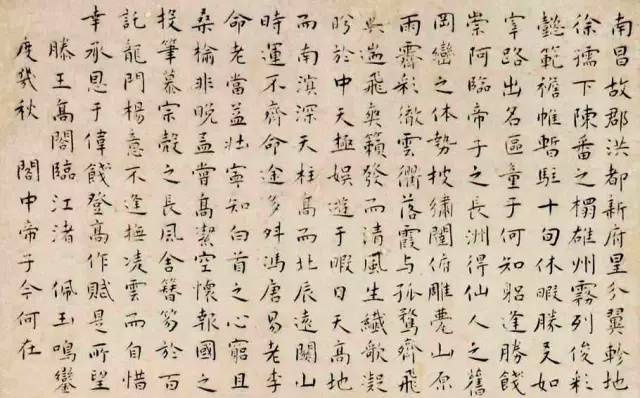 南昌故郡洪都新府星分翼軫地
徐孺下陳蕃之榻雄州霧列俊彩
懿範襜帷暫駐十旬休暇勝友如
宰路出名區童子何知躬逢勝餞
崇阿臨帝子之長洲得仙人之舊
岡巒之体勢披繡闥俯雕甍山原
雨霽彩徹雲衢落霞与孤鶩齊飛
興遄飛爽籟發而清風生纖歌凝
盻於中天極娛遊于暇日天高地
而南溟深天柱高而北辰遠關山
時運不齊命途多舛馮唐易老李
命老當益壯寧知白首之心窮且
桑榆非晚孟嘗高潔空懷報國之
投筆慕宗慤之長風舍簪笏於百
託龍門楊意不逢撫凌雲而自惜
幸承恩于偉餞登高作賦是所望
滕王高閣臨江渚 佩玉鳴鑾
度幾秋 閣中帝子今何在